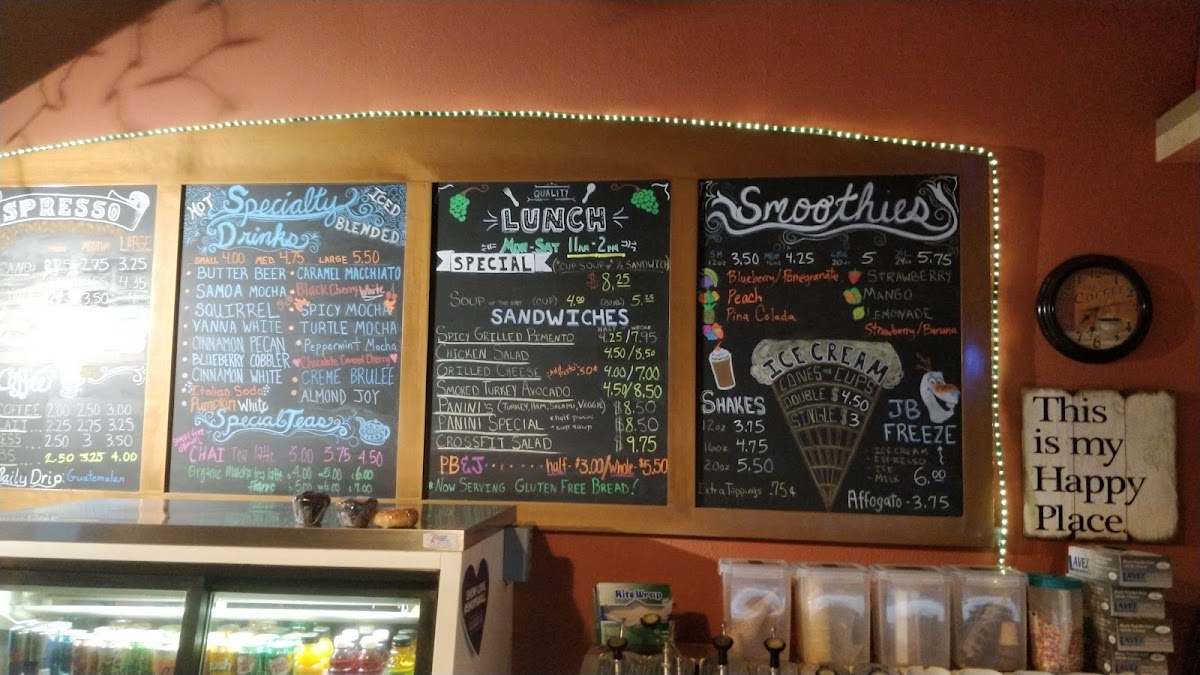 SPRESSO
LARGE
2.75 3.25
4.35
3.50
COFFEE 2.00 2.50 3.00
2.25 2.75 3.25
2.50 3 3.50
2.50 3.25 4.00
Daily Drip: Guatemalan
HOT Specialty ICED
Drinks BLENDED
SMALL 4.00 MED 4.75 LARGE 5.50
• BUTTER BEER • CARAMEL MACCHIATO
• SAMOA MOCHA • Black Cherry White
• SQUIRREL • SPICY MOCHA
• VANNA WHITE • TURTLE MOCHA
• CINNAMON PECAN • Peppermint Mocha
• BLUEBERRY COBBLER • Chocolate Covered Cherry
• CINNAMON WHITE • CREME BRULEE
• Italian Soda • ALMOND JOY
• Pumpkin White
Special Teas
CHAI Tea latte 3.00 3.75 4.50
Organic Matcha tea latte 4.00 5.00 6.00
5.00 6.00 7.00
QUALITY
LUNCH
MON-SAT 11AM-2PM
SPECIAL (*CUP SOUP & ½ SANDWICH
$8.25
SOUP OF THE DAY (CUP) 4.00 (BOWL) 5.25
SANDWICHES
HALF WHOLE
SPICY GRILLED PIMENTO 4.25/7.95
CHICKEN SALAD 4.50/8.50
GRILLED CHEESE 4.00/7.00
SMOKED TURKEY AVOCADO 4.50/8.50
PANINI'S (TURKEY, HAM, SALAMI, VEGGIE) $8.50
PANINI SPECIAL • half panini • cup soup $8.50
CROSSFIT SALAD $9.75
PB&J ...... half-$3.00/whole-$5.50
*NOW SERVING GLUTEN FREE BREAD!
Smoothies
SM 12oz 3.50 MED 16oz 4.25 LRG 20oz 5 24oz 5.75
Blueberry/Pomegranate STRAWBERRY
Peach MANGO
Pina Colada LEMONADE
Strawberry/Banana
ICE CREAM
CONES OR CUPS
DOUBLE $4.50
SINGLE $3
SHAKES
12oz 3.75
16oz 4.75
20oz 5.50
Extra Toppings .75¢
JB
FREEZE
- ICE CREAM
- ESPRESSO
- ICE
- MILK 6.00
Affogato - 3.75
COFFEE
This
is my
Happy
Place.
KiteWrap
LAVEX
LAVEX
LAVEX
LAVEX